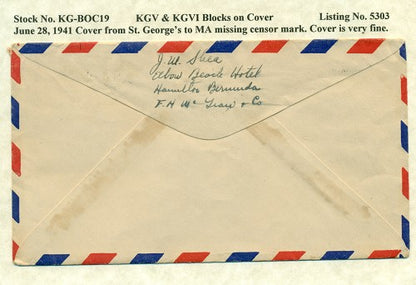 Stock No. KG-BOC19 KGV & KGVI Blocks on Cover Listing No. 5303
June 28, 1941 Cover from St. George's to MA missing censor mark. Cover is very fine.
J. W. Shea
Elbow Beach Hotel
Hamilton Bermuda
F. H. & Co